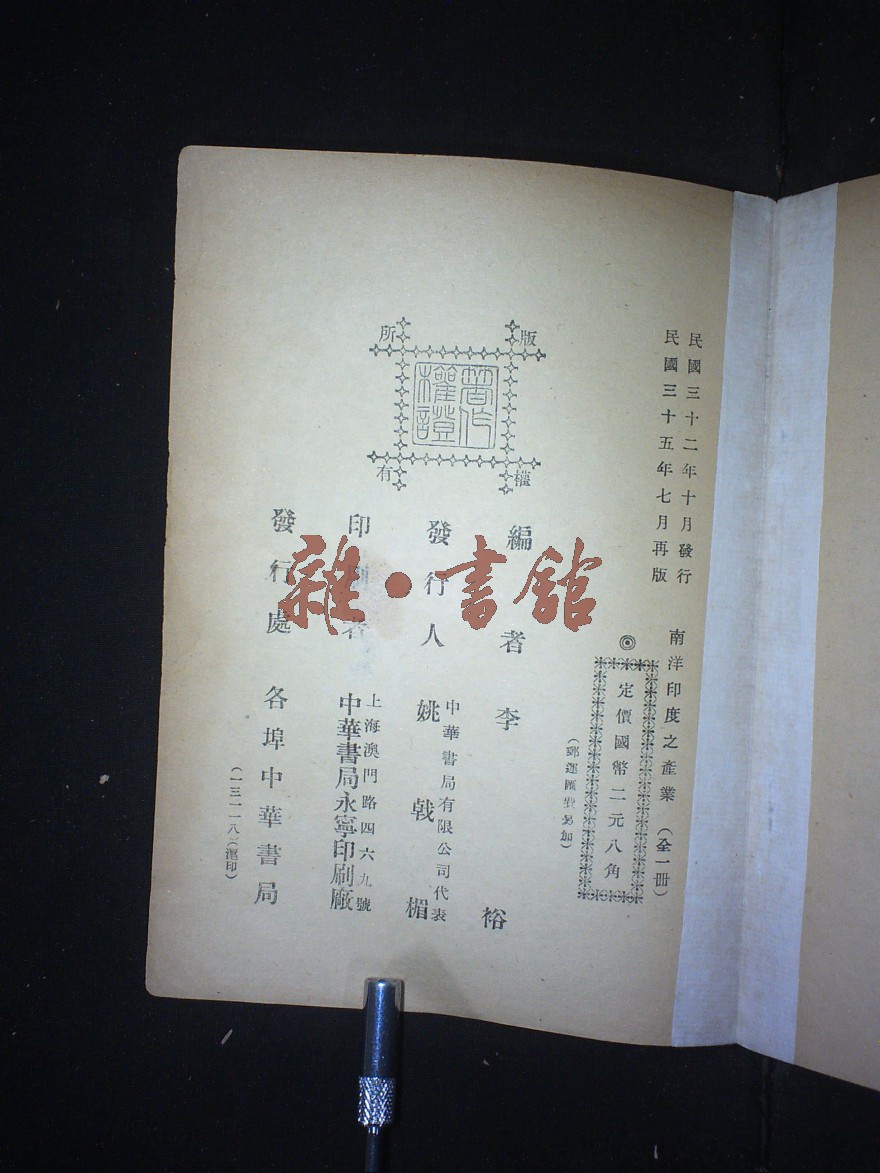 民國三十二年十月發行
民國三十五年七月再版
南洋印度之產業（全一冊）
◎定價國幣二元八角
（郵運匯費另加）
版權所有
著作權證
編者 李裕
發行人 中華書局有限公司代表
姚戟楣
印刷者 上海澳門路四六九號
中華書局永寧印刷廠
發行處 各埠中華書局
（一三一一八）（滬印）
雜·書館